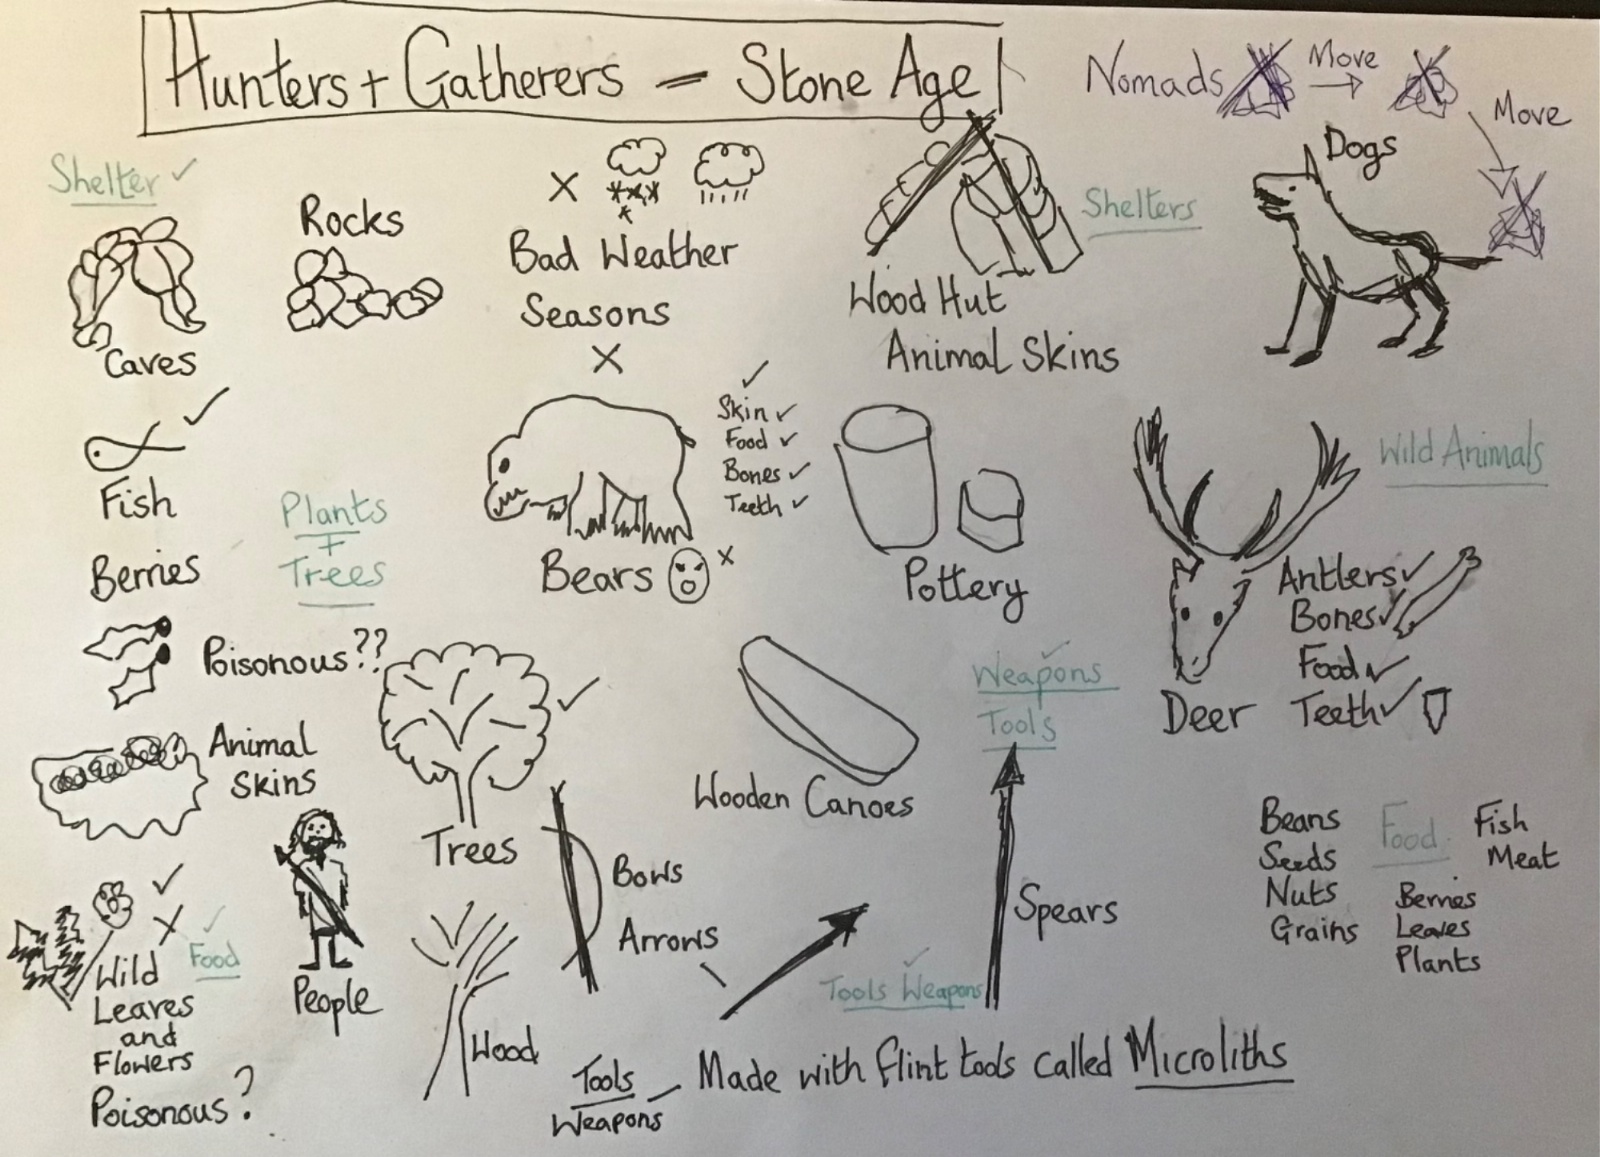 Hunters + Gatherers – Stone Age
Nomads
Move
Move
Shelter ✓
Caves
Rocks
Bad Weather
Seasons
Wood Hut
Animal Skins
Shelters
Dogs
Fish
Berries
Poisonous??
Plants
+
Trees
Bears
Skin ✓
Food ✓
Bones ✓
Teeth ✓
Pottery
Wild Animals
Antlers ✓
Bones ✓
Food ✓
Teeth ✓
Deer
Animal
Skins
Trees
Wooden Canoes
Weapons
Tools
Wild
Leaves
and
Flowers
Poisonous?
Food
People
Wood
Bows
Arrows
Spears
Tools Weapons
Beans
Seeds
Nuts
Grains
Food
Fish
Meat
Berries
Leaves
Plants
Tools
Weapons
– Made with flint tools called Microliths